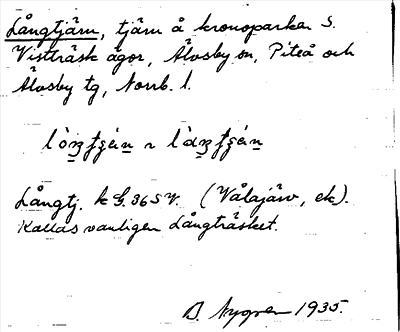 Långtjärn, tjärn å kronoparken S.
Visträsk ägor, Älvsby sn, Piteå och
Älvsby tg, Norrb. l.
Långtj. k G. 36 S V. (Vålajärv, ek).
Kallas vanligen Långträsket.
B. Nygren 1935.